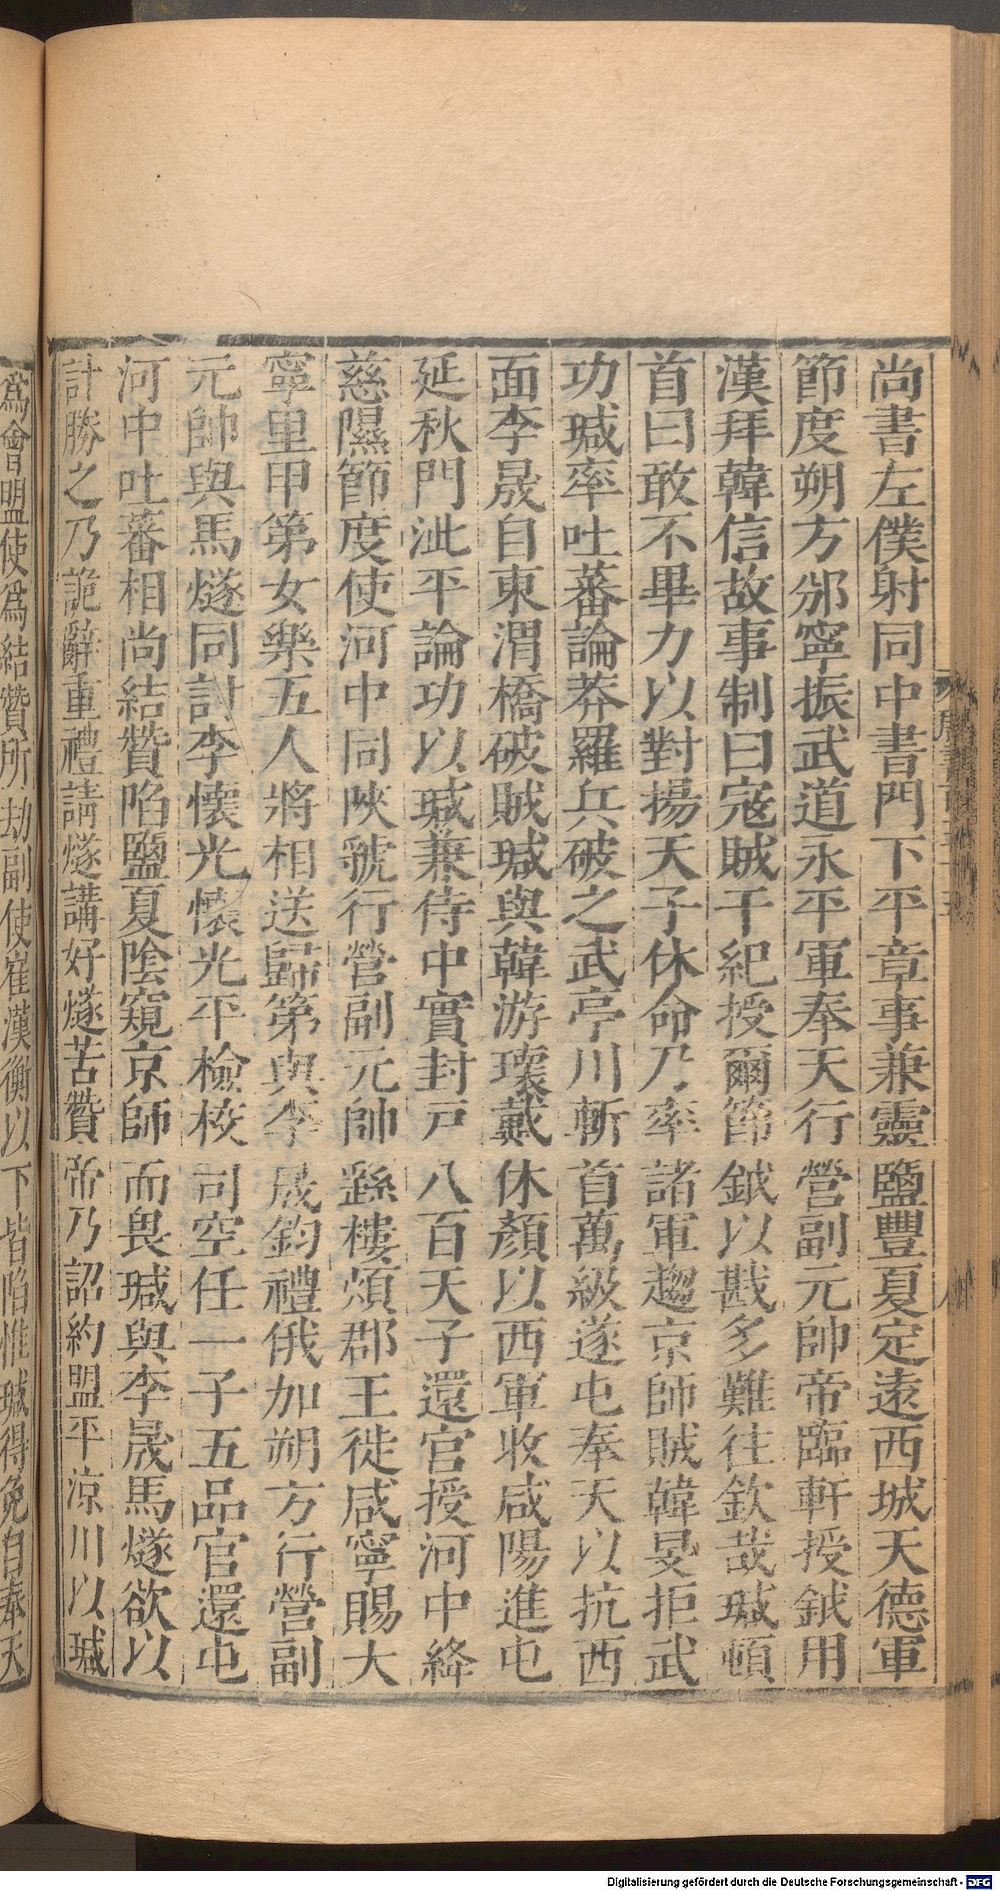 尚書左僕射同中書門下平章事兼靈鹽豐夏定遠西城天德軍
節度朔方邠寧振武道永平軍奉天行營副元帥帝臨軒授鉞用
漢拜韓信故事制曰寇賊干紀授爾節鉞以戡多難往欽哉瑊頓
首曰敢不畢力以對揚天子休命乃率諸軍趨京師賊韓旻拒武
功瑊率吐蕃論莽羅兵破之武亭川斬首萬級遂屯奉天以抗西
面李晟自東渭橋破賊瑊與韓游瓌戴休顏以西軍收咸陽進屯
延秋門泚平論功以瑊兼侍中實封戶八百天子還官授河中絳
慈隰節度使河中同陝虢行營副元帥繇樓煩郡王徙咸寧賜大
寧里甲第女樂五人將相送歸第與李晟鈞禮俄加朔方行營副
元帥與馬燧同討李懷光懷光平檢校司空任一子五品官還屯
河中吐蕃相尚結贊陷鹽夏陰窺京師而畏瑊與李晟馬燧欲以
計勝之乃詭辭重禮請燧講好燧苦贊帝乃詔約盟平涼川以瑊
爲會盟使爲結贊所劫副使崔漢衡以下皆陷惟瑊得免自奉天
Digitalisierung gefördert durch die Deutsche Forschungsgemeinschaft - DFG